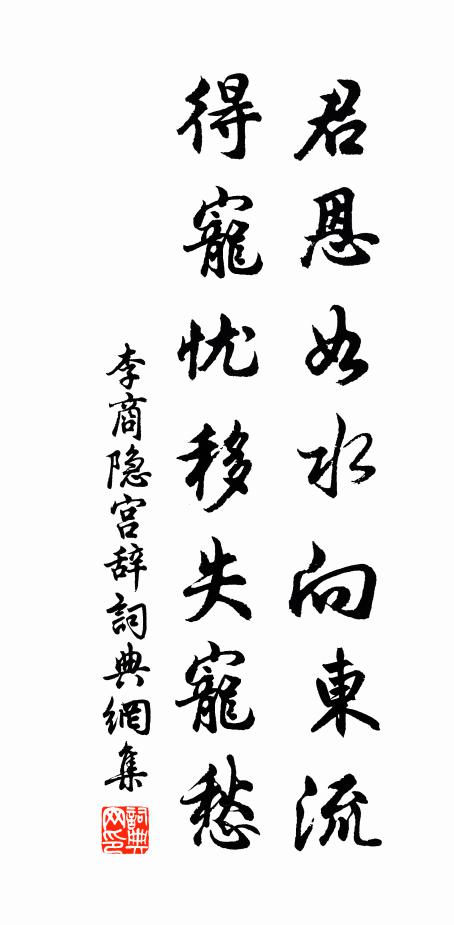 君恩如水向東流
得寵忧移失寵愁
李商隐宫辞詞典網集
詞典网印